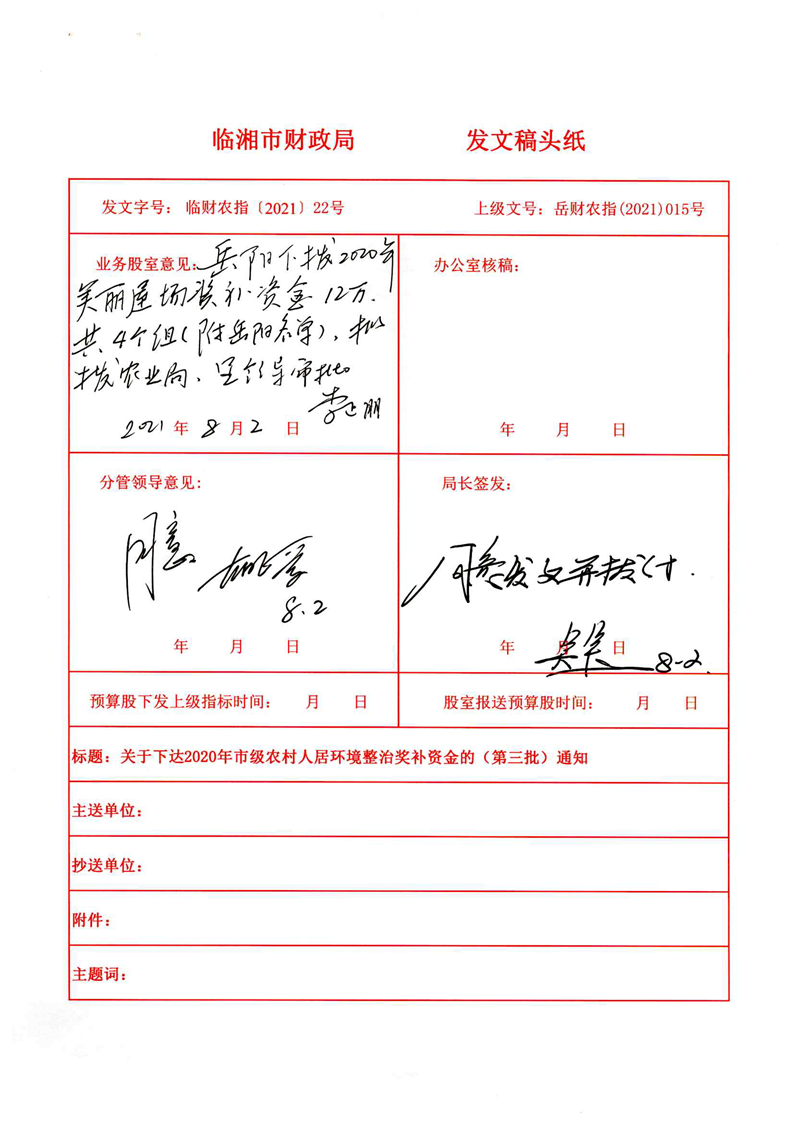 临湘市财政局 发文稿头纸
发文字号： 临财农指〔2021〕22号 上级文号：岳财农指(2021)015号
业务股室意见：岳阳下拨2020年
美丽屋场奖补资金12万.
共4个组(附岳阳名单)，拟
拨农业局、呈领导审批
2021年8月2日
办公室核稿：
年 月 日
分管领导意见：
同意
8.2
年 月 日
局长签发：
同意发文并拨付.
8-2.
年 月 日
预算股下发上级指标时间： 月 日
股室报送预算股时间： 月 日
标题：关于下达2020年市级农村人居环境整治奖补资金的（第三批）通知
主送单位：
抄送单位：
附件：
主题词：